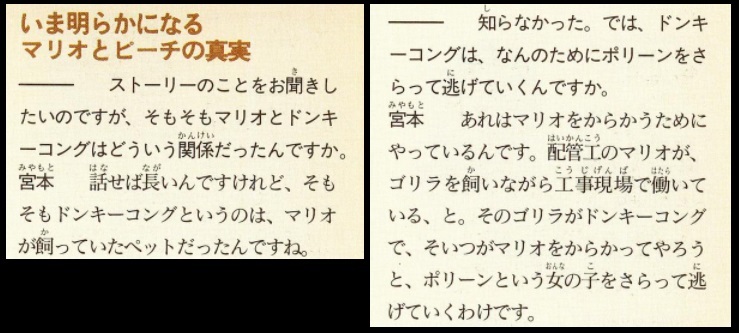 いま明らかになる
マリオとピーチの真実
―― ストーリーのことをお聞きし
たいのですが、そもそもマリオとドンキ
ーコングはどういう関係だったんですか。
宮本 話せば長いんですけれど、そも
そもドンキーコングというのは、マリオ
が飼っていたペットだったんですね。
―― 知らなかった。では、ドンキ
ーコングは、なんのためにポリーンをさ
らって逃げていくんですか。
宮本 あれはマリオをからかうために
やっているんです。配管工のマリオが、
ゴリラを飼いながら工事現場で働いて
いる、と。そのゴリラがドンキーコング
で、そいつがマリオをからかってやろう
と、ポリーンという女の子をさらって逃
げていくわけです。